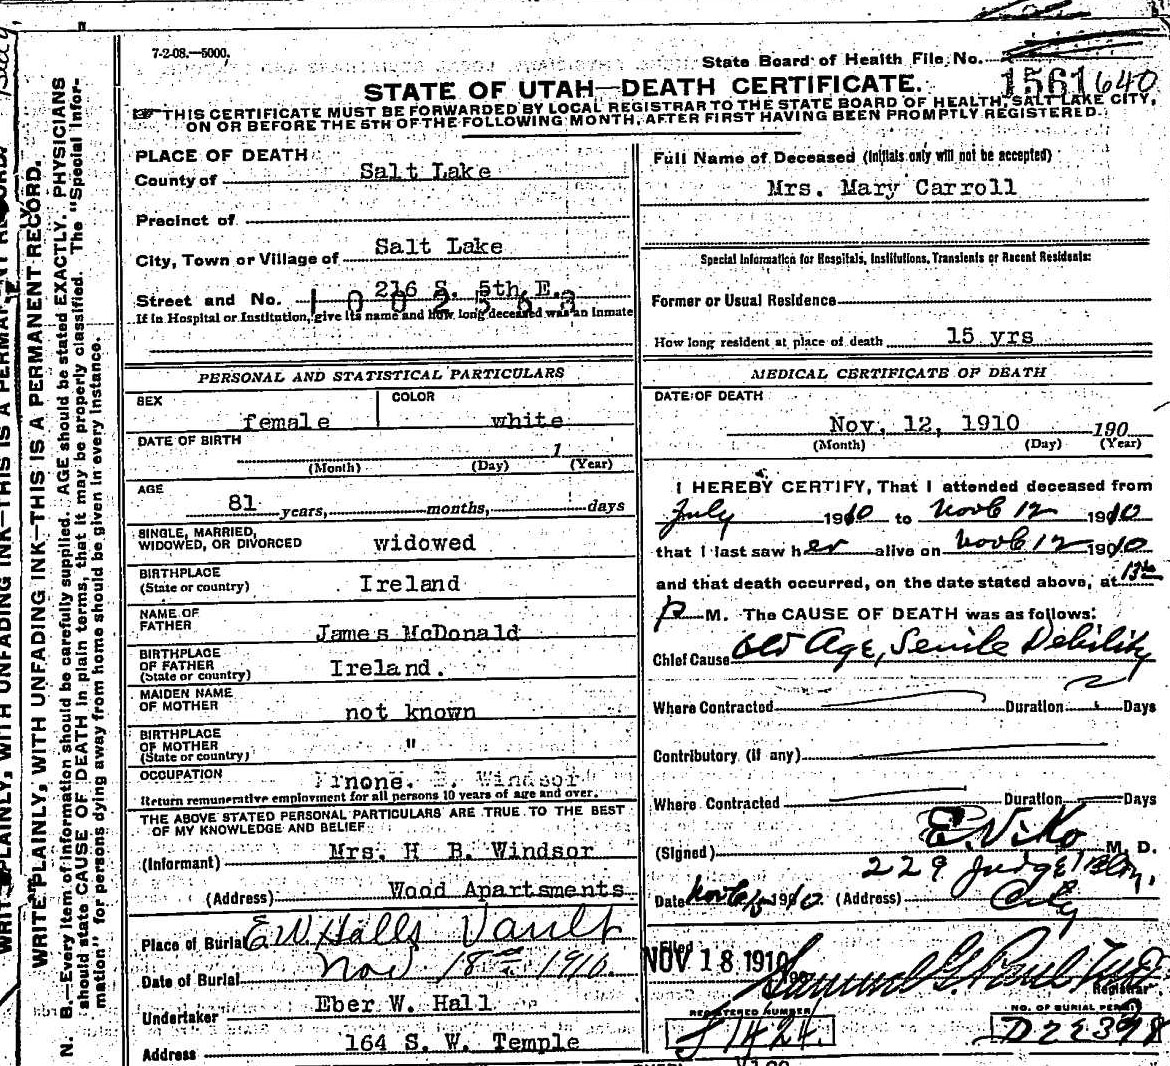 7-2-08.—5000.
State Board of Health File No.
1561 640
STATE OF UTAH—DEATH CERTIFICATE.
THIS CERTIFICATE MUST BE FORWARDED BY LOCAL REGISTRAR TO THE STATE BOARD OF HEALTH, SALT LAKE CITY,
ON OR BEFORE THE 5TH OF THE FOLLOWING MONTH, AFTER FIRST HAVING BEEN PROMPTLY REGISTERED.
PLACE OF DEATH
County of Salt Lake
Precinct of
City, Town or Village of Salt Lake
Street and No. 216 S. 5th E.
1002563
If in Hospital or Institution, give its name and how long deceased was an Inmate
Full Name of Deceased (Initials only will not be accepted)
Mrs. Mary Carroll
Special Information for Hospitals, Institutions, Transients or Recent Residents:
Former or Usual Residence
How long resident at place of death 15 yrs
PERSONAL AND STATISTICAL PARTICULARS
SEX female COLOR white
DATE OF BIRTH 1
(Month) (Day) (Year)
AGE
81 years, months, days
SINGLE, MARRIED,
WIDOWED, OR DIVORCED widowed
BIRTHPLACE
(State or country) Ireland
NAME OF
FATHER James McDonald
BIRTHPLACE
OF FATHER
(State or country) Ireland.
MAIDEN NAME
OF MOTHER not known
BIRTHPLACE
OF MOTHER "
(State or country)
OCCUPATION none. Windsor
Return remunerative employment for all persons 10 years of age and over.
THE ABOVE STATED PERSONAL PARTICULARS ARE TRUE TO THE BEST
OF MY KNOWLEDGE AND BELIEF
(Informant) Mrs. H B. Windsor
(Address) Wood Apartsments
Place of Burial E W Halls Vault
Date of Burial Nov 18th 1910.
Undertaker Eber W. Hall
Address 164 S. W. Temple
MEDICAL CERTIFICATE OF DEATH
DATE OF DEATH
Nov. 12, 1910 190
(Month) (Day) (Year)
I HEREBY CERTIFY, That I attended deceased from
July 1910 to Novb 12 1910
that I last saw her alive on Novb 12 1910
and that death occurred, on the date stated above, at
P M. The CAUSE OF DEATH was as follows:
Chief Cause Old Age, Senile Debility
Where Contracted Duration Days
Contributory (if any)
Where Contracted Duration Days
(Signed) E. Viko M. D.
229 Judge Bldg.
Date Novb 1910 (Address) City
Filed
NOV 18 1910 Samuel G. Paul
Registrar
REGISTERED NUMBER
J1424.
NO. OF BURIAL PERMIT
D22398
WRITE PLAINLY, WITH UNFADING INK—THIS IS A PERMANENT RECORD.
WRITE PLAINLY, WITH UNFADING INK—THIS IS A PERMANENT RECORD.
N. B.—Every item of information should be carefully supplied. AGE should be stated EXACTLY. PHYSICIANS
should state CAUSE OF DEATH in plain terms, that it may be properly classified. The "Special Infor-
mation" for persons dying away from home should be given in every instance.